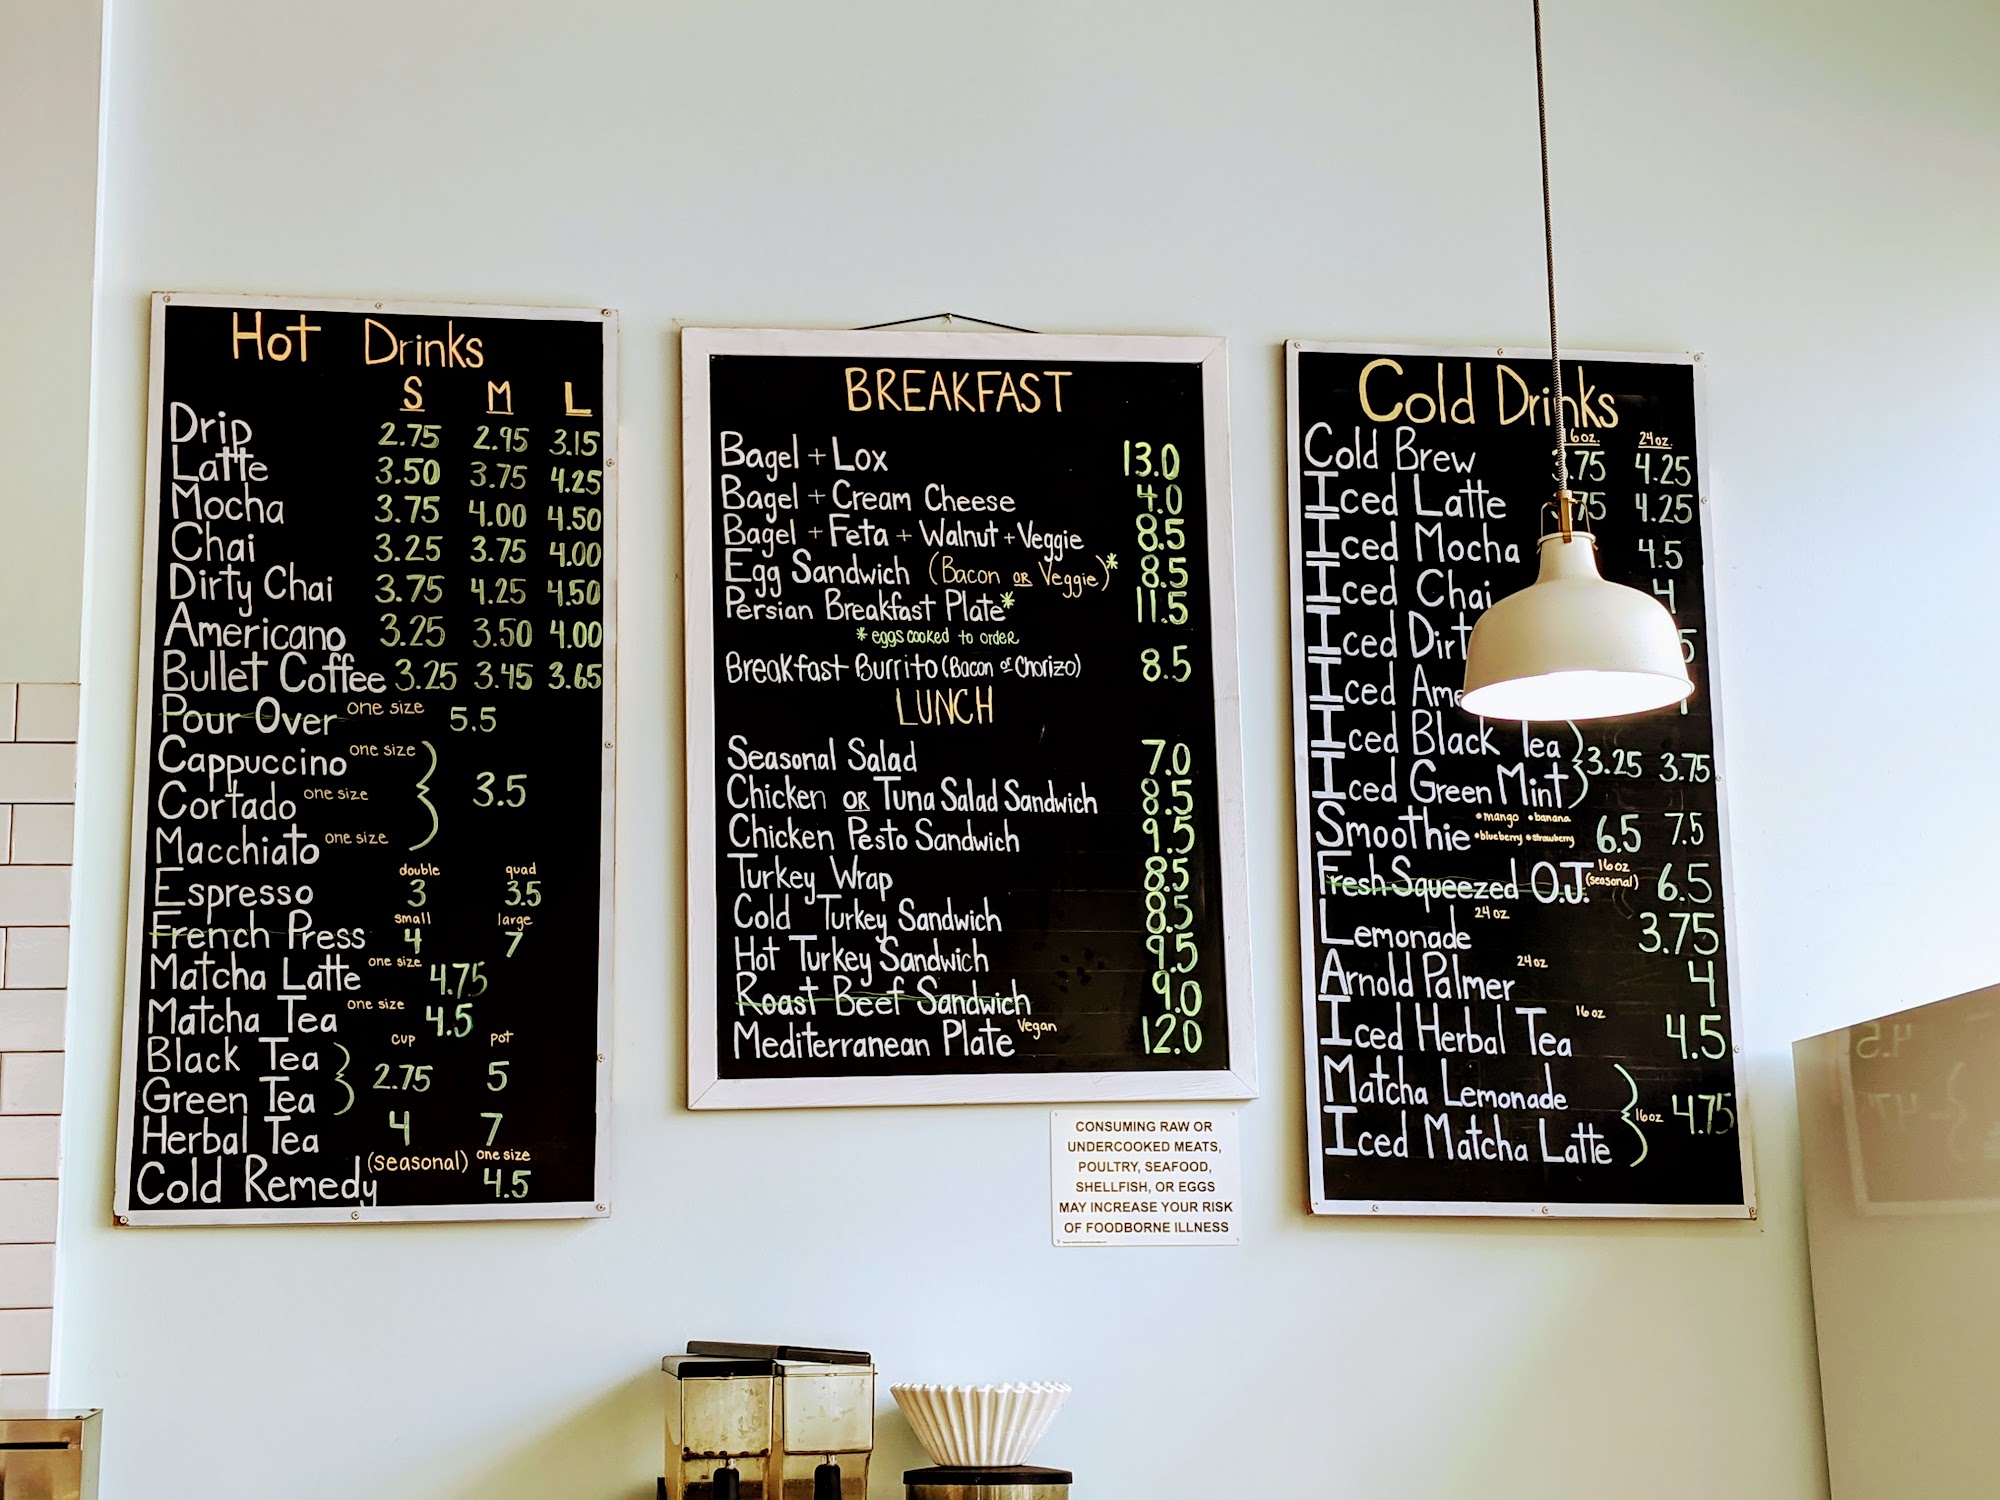 Hot Drinks
S M L
Drip 2.75 2.95 3.15
Latte 3.50 3.75 4.25
Mocha 3.75 4.00 4.50
Chai 3.25 3.75 4.00
Dirty Chai 3.75 4.25 4.50
Americano 3.25 3.50 4.00
Bullet Coffee 3.25 3.45 3.65
Pour Over one size 5.5
Cappuccino one size
Cortado one size 3.5
Macchiato one size
double quad
Espresso 3 3.5
small large
French Press 4 7
Matcha Latte one size 4.75
Matcha Tea one size 4.5
cup pot
Black Tea
Green Tea 2.75 5
Herbal Tea 4 7
Cold Remedy (seasonal) one size 4.5
BREAKFAST
Bagel + Lox 13.0
Bagel + Cream Cheese 4.0
Bagel + Feta + Walnut + Veggie 8.5
Egg Sandwich (Bacon OR Veggie)* 8.5
Persian Breakfast Plate* 11.5
* eggs cooked to order
Breakfast Burrito (Bacon or Chorizo) 8.5
LUNCH
Seasonal Salad 7.0
Chicken OR Tuna Salad Sandwich 8.5
Chicken Pesto Sandwich 9.5
Turkey Wrap 8.5
Cold Turkey Sandwich 8.5
Hot Turkey Sandwich 9.5
Roast Beef Sandwich 9.0
Mediterranean Plate Vegan 12.0
CONSUMING RAW OR
UNDERCOOKED MEATS,
POULTRY, SEAFOOD,
SHELLFISH, OR EGGS
MAY INCREASE YOUR RISK
OF FOODBORNE ILLNESS
Cold Drinks
16oz. 24oz.
Cold Brew 3.75 4.25
Iced Latte 3.75 4.25
Iced Mocha 4.5
Iced Chai 4
Iced
Iced
Iced Black Tea
Iced Green Mint 3.25 3.75
Smoothie •mango •banana •blueberry •strawberry 6.5 7.5
Fresh Squeezed O.J. 16oz (seasonal) 6.5
Lemonade 24oz 3.75
Arnold Palmer 24oz 4
Iced Herbal Tea 16oz 4.5
Matcha Lemonade
Iced Matcha Latte 16oz 4.75